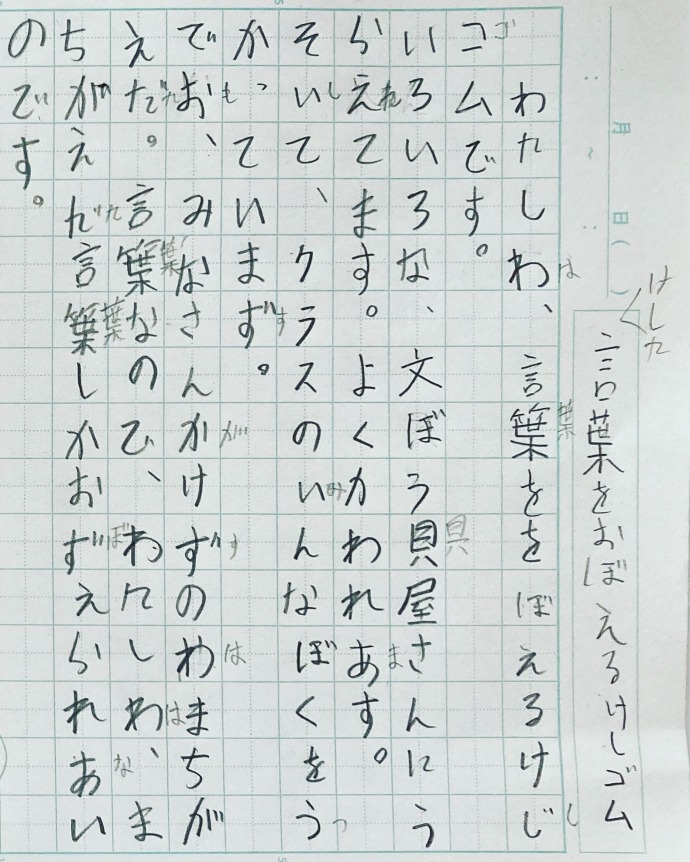 月 日( )
けした
言葉をおぼえるけしゴム
は 葉 し
わたしわ、言葉ををぼえるけじ
ゴ
コムです。
具
いろいろな、文ぼう貝屋さんにう
れ ま
らえてます。よくかわれあす。
し み っ
そいて、クラスのいんなぼくをう
す
かっていまず。
も が す は
でお、みなさんかけずのわまちが
た 葉 は
えだ。言葉なので、わたしわ、ま
た 葉 ぼ な
ちがえだ言葉しかおずえられあい
のです。